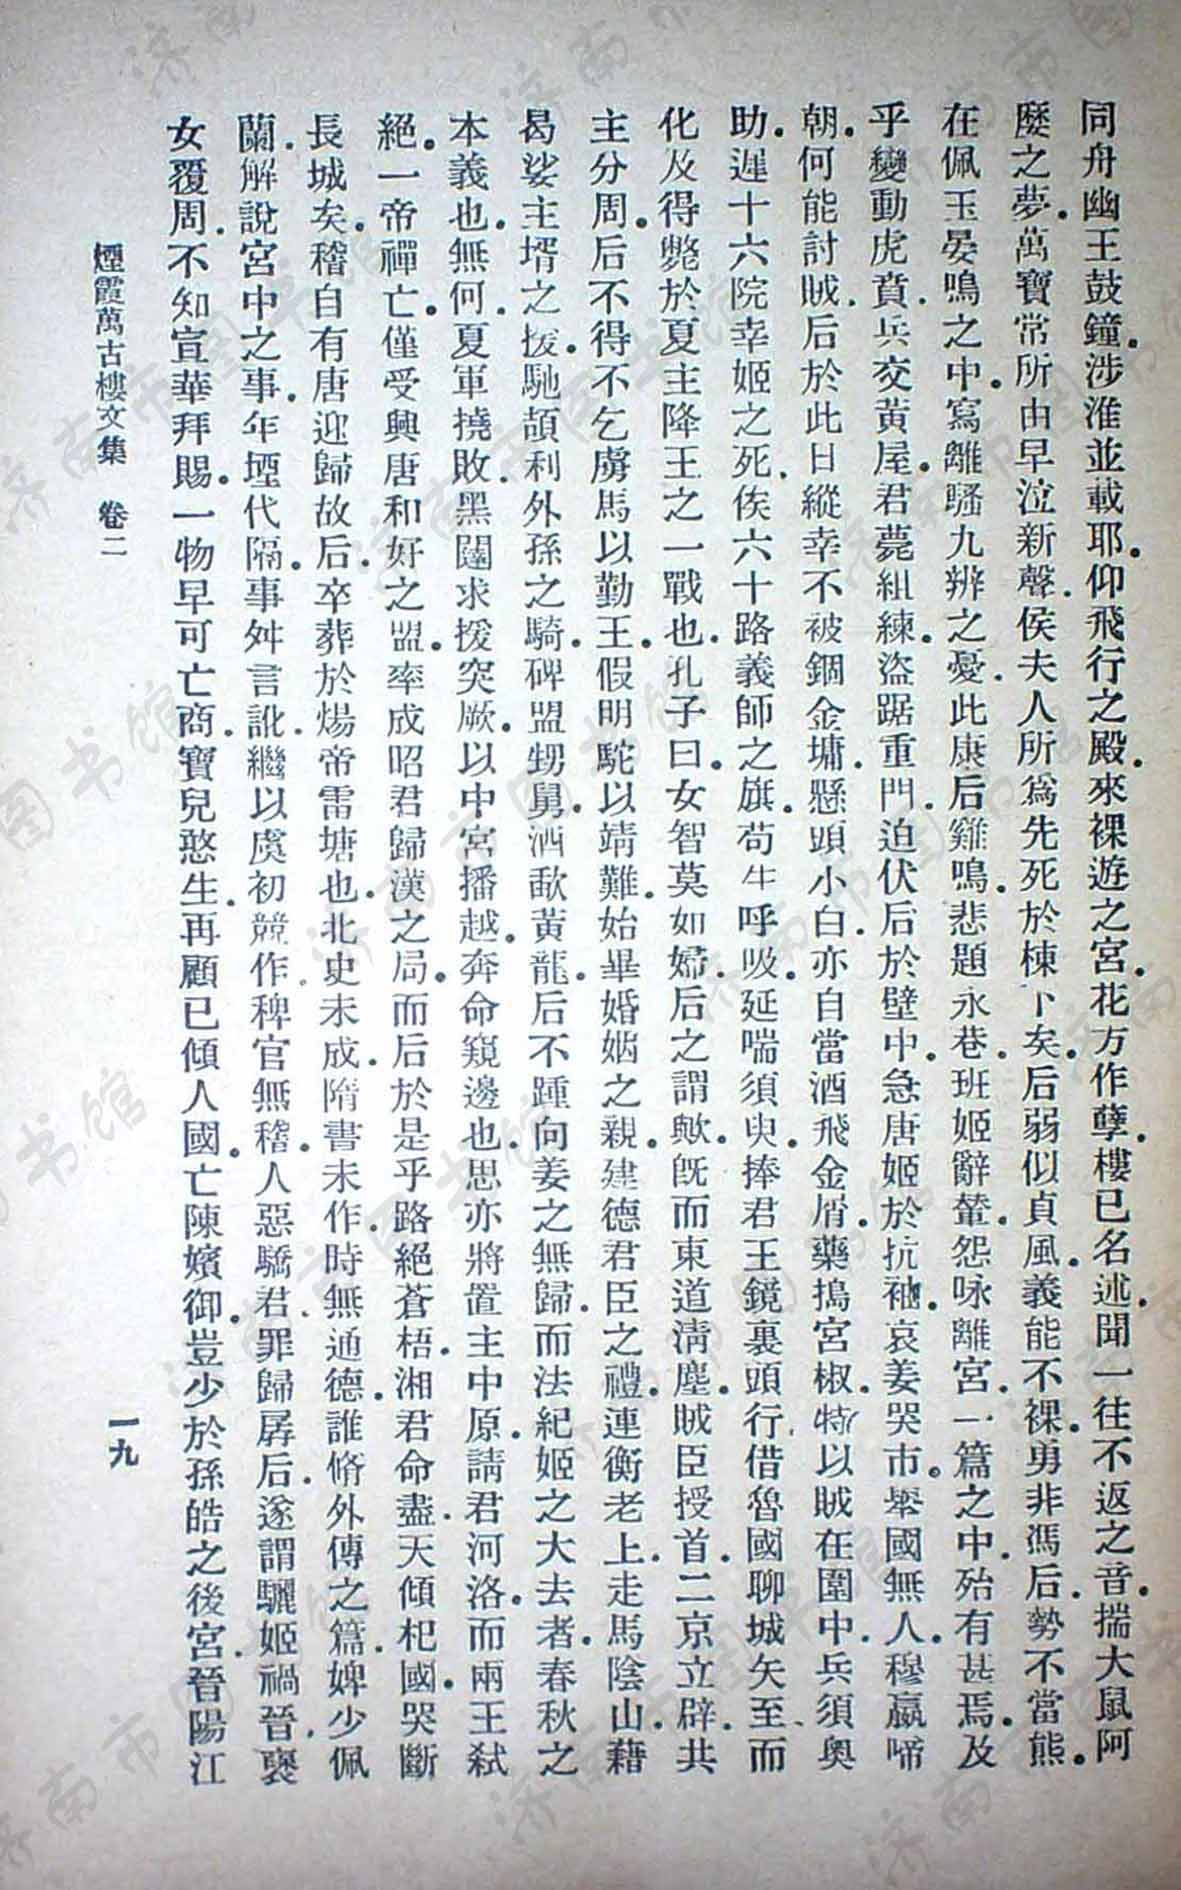 同舟幽王鼓鐘。涉淮並載耶。仰飛行之殿。來裸遊之宮。花方作孽。樓已名迷。聞一往不返之音。揣大鼠阿
麼之夢。萬寶常所由早泣新聲。侯夫人所爲先死於棟下矣。后弱似貞風。義能不裸。勇非馮后。勢不當熊。
在佩玉晏鳴之中。寫離騷九辨之憂。此康后雞鳴。悲題永巷。班姬辭輦。怨咏離宮。一篇之中。殆有甚焉。及
乎變動虎賁。兵交黃屋。君薨組練。盜踞重門。迫伏后於壁中。急唐姬於抗袖。哀姜哭市。舉國無人。穆嬴啼
朝。何能討賊。后於此日。縱幸不被錮金墉。懸頭小白。亦自當酒飛金屑。藥搗宮椒。特以賊在圍中。兵須奧
助。遲十六院幸姬之死。俟六十路義師之旗。苟生呼吸。延喘須臾。捧君王鏡裏頭行。借魯國聊城矢至。而
化及得斃於夏主降王之一戰也。孔子曰。女智莫如婦。后之謂歟。旣而東道清塵。賊臣授首。二京立辟。共
主分周。后不得不乞虜馬以勤王。假明駝以靖難。始畢婚姻之親。建德君臣之禮。連衡老上。走馬陰山。藉
曷娑主壻之援。馳頡利外孫之騎。碑盟甥舅。洒歃黃龍。后不踵向姜之無歸。而法紀姬之大去者。春秋之
本義也。無何。夏軍撓敗。黑闥求援突厥。以中宮播越。奔命窺邊也。思亦將置主中原。請君河洛。而兩王弒
絕。一帝禪亡。僅受興唐和好之盟。率成昭君歸漢之局。而后於是乎路絕蒼梧。湘君命盡。天傾杞國。哭斷
長城矣。稽自有唐迎歸故后。卒葬於煬帝雷塘也。北史未成。隋書未作。時無通德。誰脩外傳之篇。婢少佩
蘭。解說宮中之事。年堙代隔。事舛言訛。繼以虞初競作。稗官無稽。人惡驕君。罪歸孱后。遂謂驪姬禍晉。褒
女覆周。不知宣華拜賜。一物早可亡商。寶兒憨生。再顧已傾人國。亡陳嬪御。豈少於孫皓之後宮。晉陽江
煙霞萬古樓文集　卷二　一九